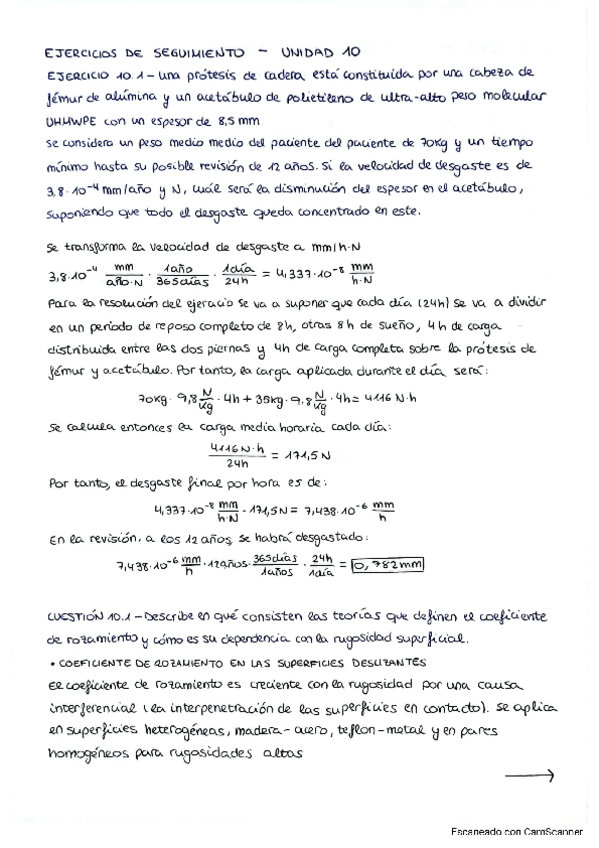 EJERCICIOS DE SEGUIMIENTO - UNIDAD 10
EJERCICIO 10.1 - Una prótesis de cadera está constituida por una cabeza de
fémur de alúmina y un acetábulo de polietileno de ultra-alto peso molecular
UHMWPE con un espesor de 8,5 mm.
Se considera un peso medio medio del paciente del paciente de 70kg y un tiempo
mínimo hasta su posible revisión de 12 años. Si la velocidad de desgaste es de
3,8·10⁻⁴ mm/año y N, cuál será la disminución del espesor en el acetábulo,
suponiendo que todo el desgaste queda concentrado en este.
Se transforma la velocidad de desgaste a mm/h·N
3,8·10⁻⁴ mm/año·N · 1año/365días · 1día/24h = 4,337·10⁻⁸ mm/h·N
Para la resolución del ejercicio se va a suponer que cada día (24h) se va a dividir
en un periodo de reposo completo de 8h, otras 8h de sueño, 4h de carga
distribuida entre las dos piernas y 4h de carga completa sobre la prótesis de
fémur y acetábulo. Por tanto, la carga aplicada durante el día será:
70kg · 9,8 N/kg · 4h + 35kg · 9,8 N/kg · 4h = 4116 N·h
Se calcula entonces la carga media horaria cada día:
4116 N·h/24h = 171,5 N
Por tanto, el desgaste final por hora es de:
4,337·10⁻⁸ mm/h·N · 171,5N = 7,438·10⁻⁶ mm/h
En la revisión, a los 12 años, se habrá desgastado:
7,438·10⁻⁶ mm/h · 12años · 365días/1años · 24h/1día = 0,782mm
CUESTIÓN 10.1 - Describe en qué consisten las teorías que definen el coeficiente
de rozamiento y cómo es su dependencia con la rugosidad superficial.
• COEFICIENTE DE ROZAMIENTO EN LAS SUPERFICIES DESLIZANTES
El coeficiente de rozamiento es creciente con la rugosidad por una causa
interferencial (la interpenetración de las superficies en contacto). Se aplica
en superficies heterogéneas, madera-acero, teflon-metal y en pares
homogéneos para rugosidades altas
Escaneado con CamScanner